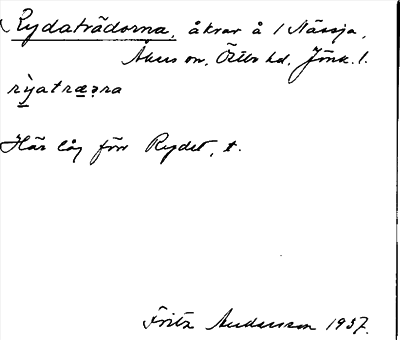 Rydaträdorna, åkrar å 1 Nässja,
Åkers sn, Östbo hd, Jönk. l.
rỳatræɔra
Här låg förr Rydet, t.
Fritz Andersson 1937.